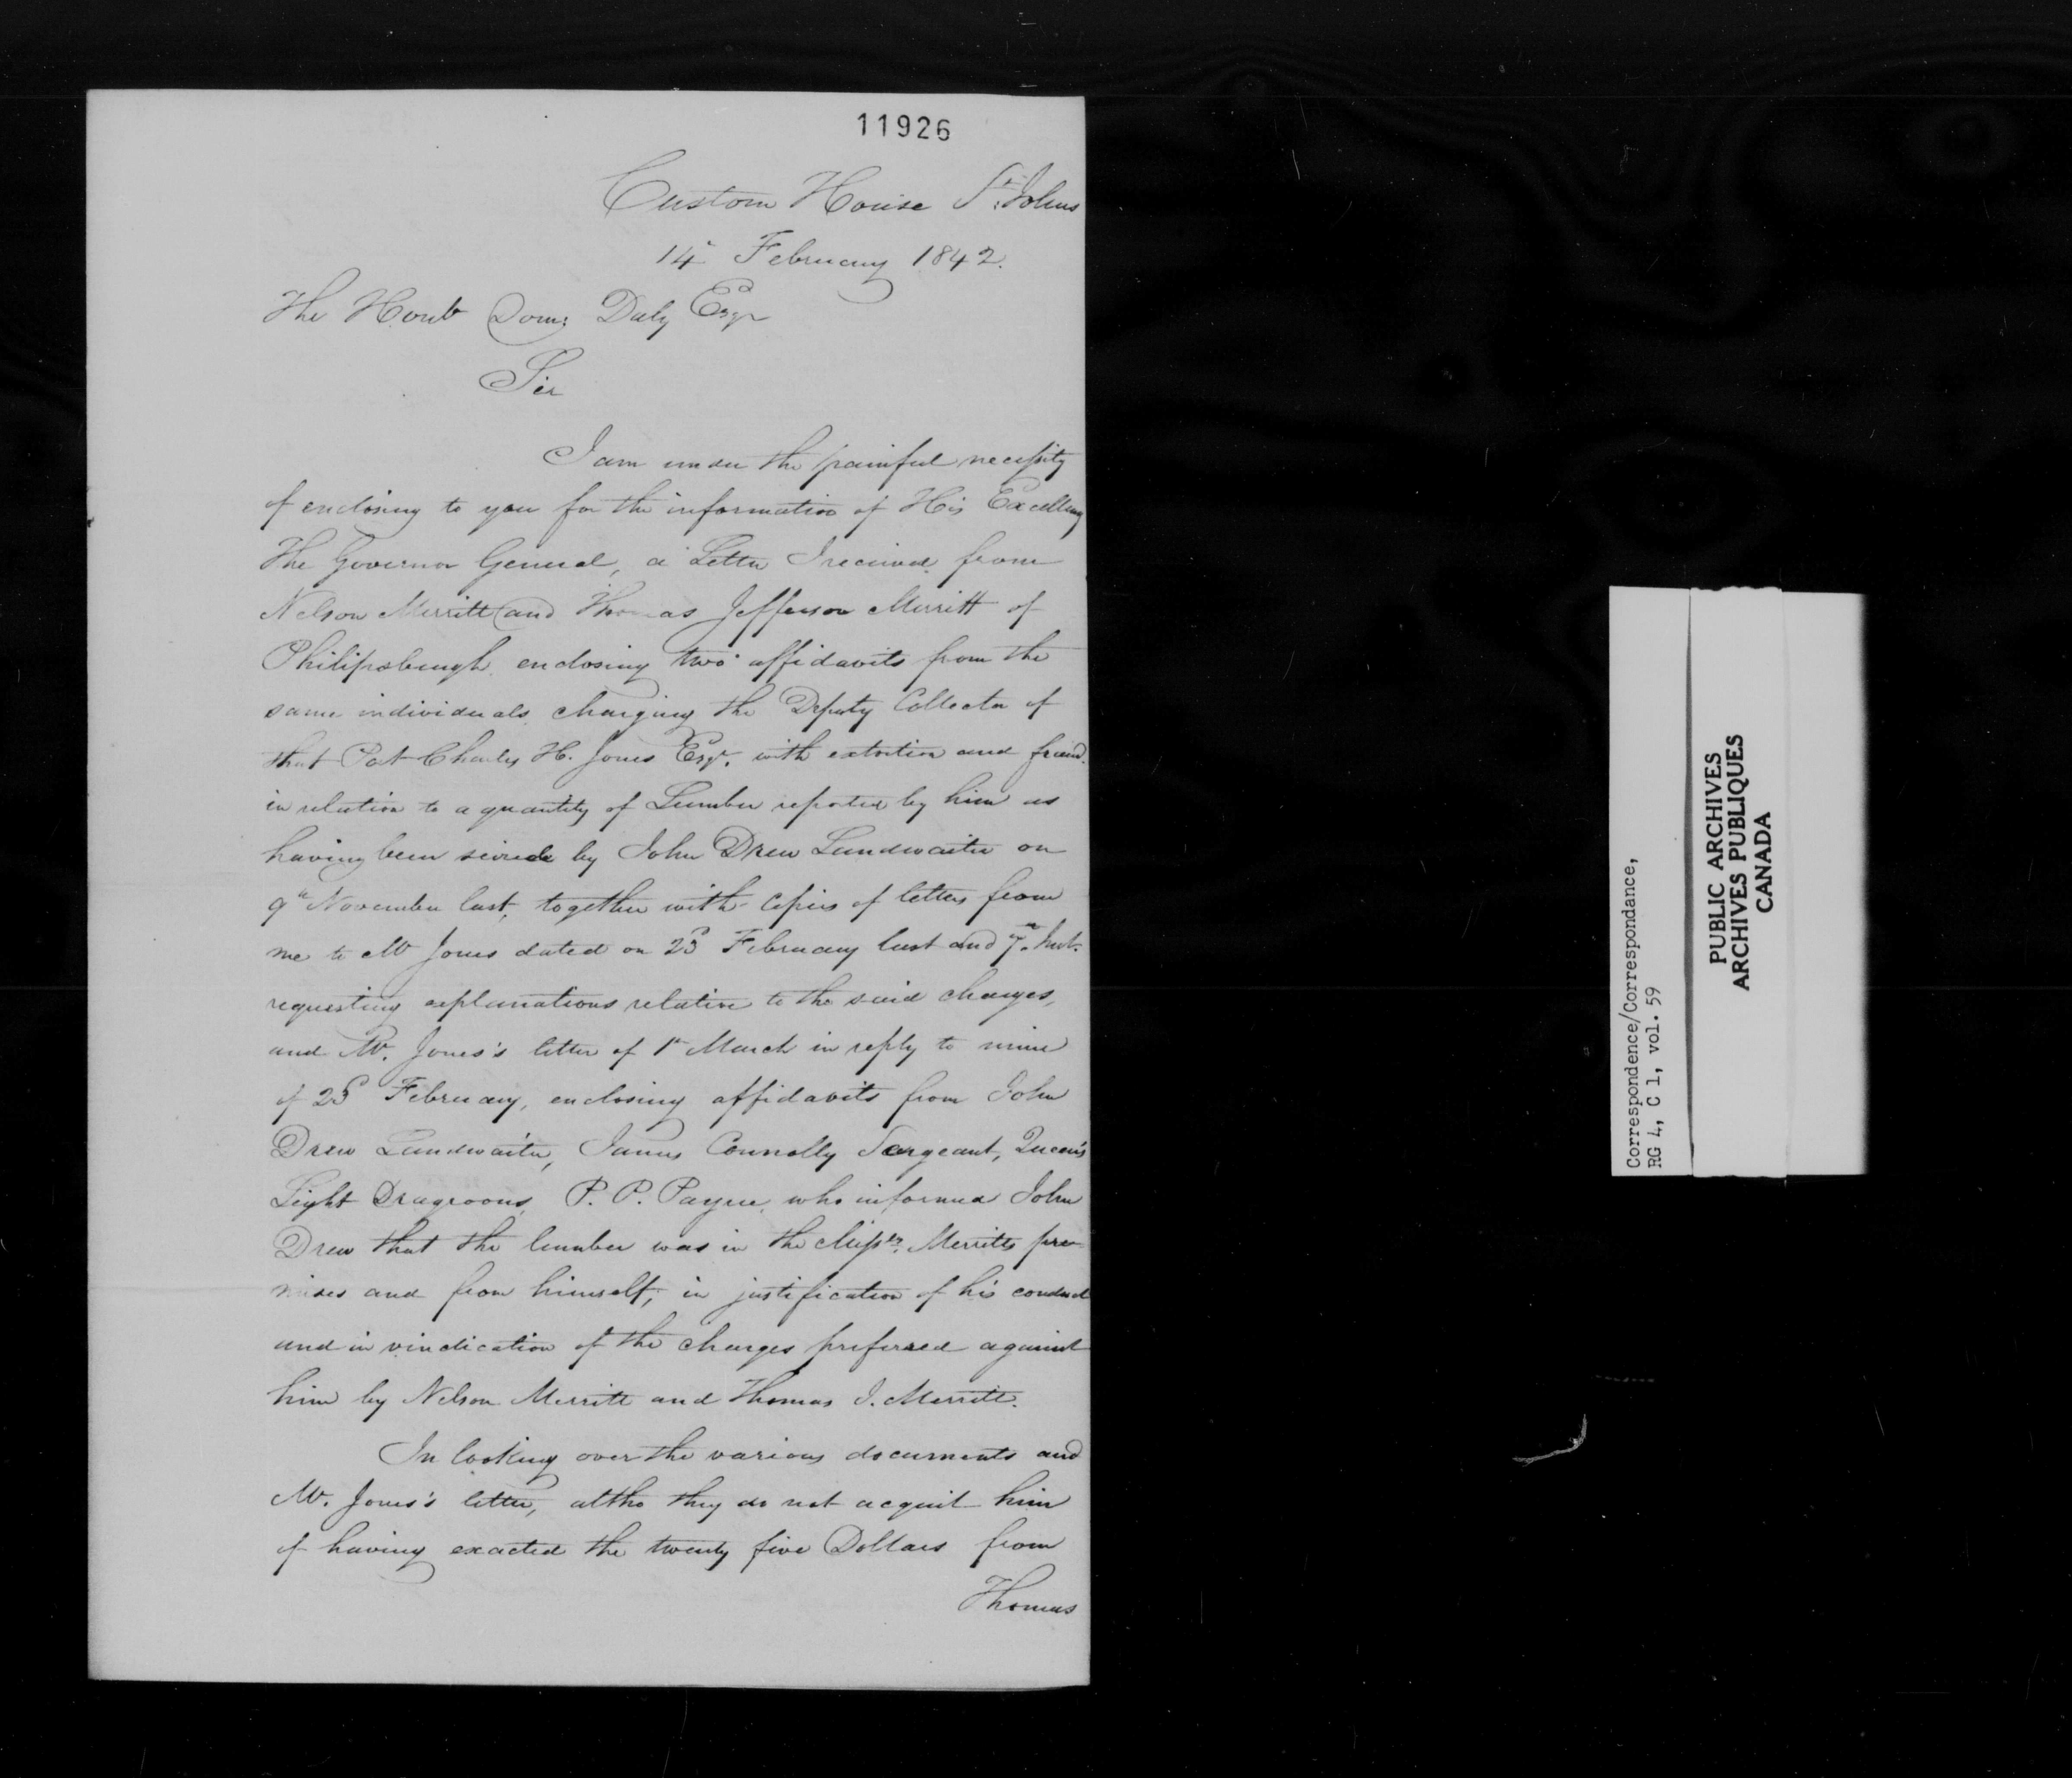 11926
Custom House St. Johns
14 February 1842.
The Honb Domk Daly Esqr
Sir
I am under the painful necessity
of enclosing to you for the information of His Excellency
The Governor General, a Letter I received from
Nelson Merritt and Thomas Jefferson Merritt of
Philipsburgh enclosing two affidavits from the
same individuals charging the Deputy Collector of
that Port Charles H. Jones Esqr. with extortion and fraud
in relation to a quantity of Lumber reported by him as
having been seized by John Drew Landwaiter on
9th November last, together with Copies of letters from
me to Mr Jones dated on 23d February last and 7th Inst.
requesting explanations relative to the said charges,
and Mr. Jones's letter of 1st March in reply to mine
of 23d February, enclosing affidavits from John
Drew Landwaiter, James Connolly Sargeant, Queen's
Light Dragoons, P. P. Payne, who informed John
Drew that the lumber was in the Messrs. Merritts pre-
mises and from himself, in justification of his conduct
and in vindication of the charges preferred against
him by Nelson Merritt and Thomas J. Merritt.
In looking over the various documents and
Mr. Jones's letter, altho they do not acquit him
of having exacted the twenty five Dollars from
Thomas
Correspondence/Correspondance,
RG 4, C 1, vol. 59
PUBLIC ARCHIVES
ARCHIVES PUBLIQUES
CANADA